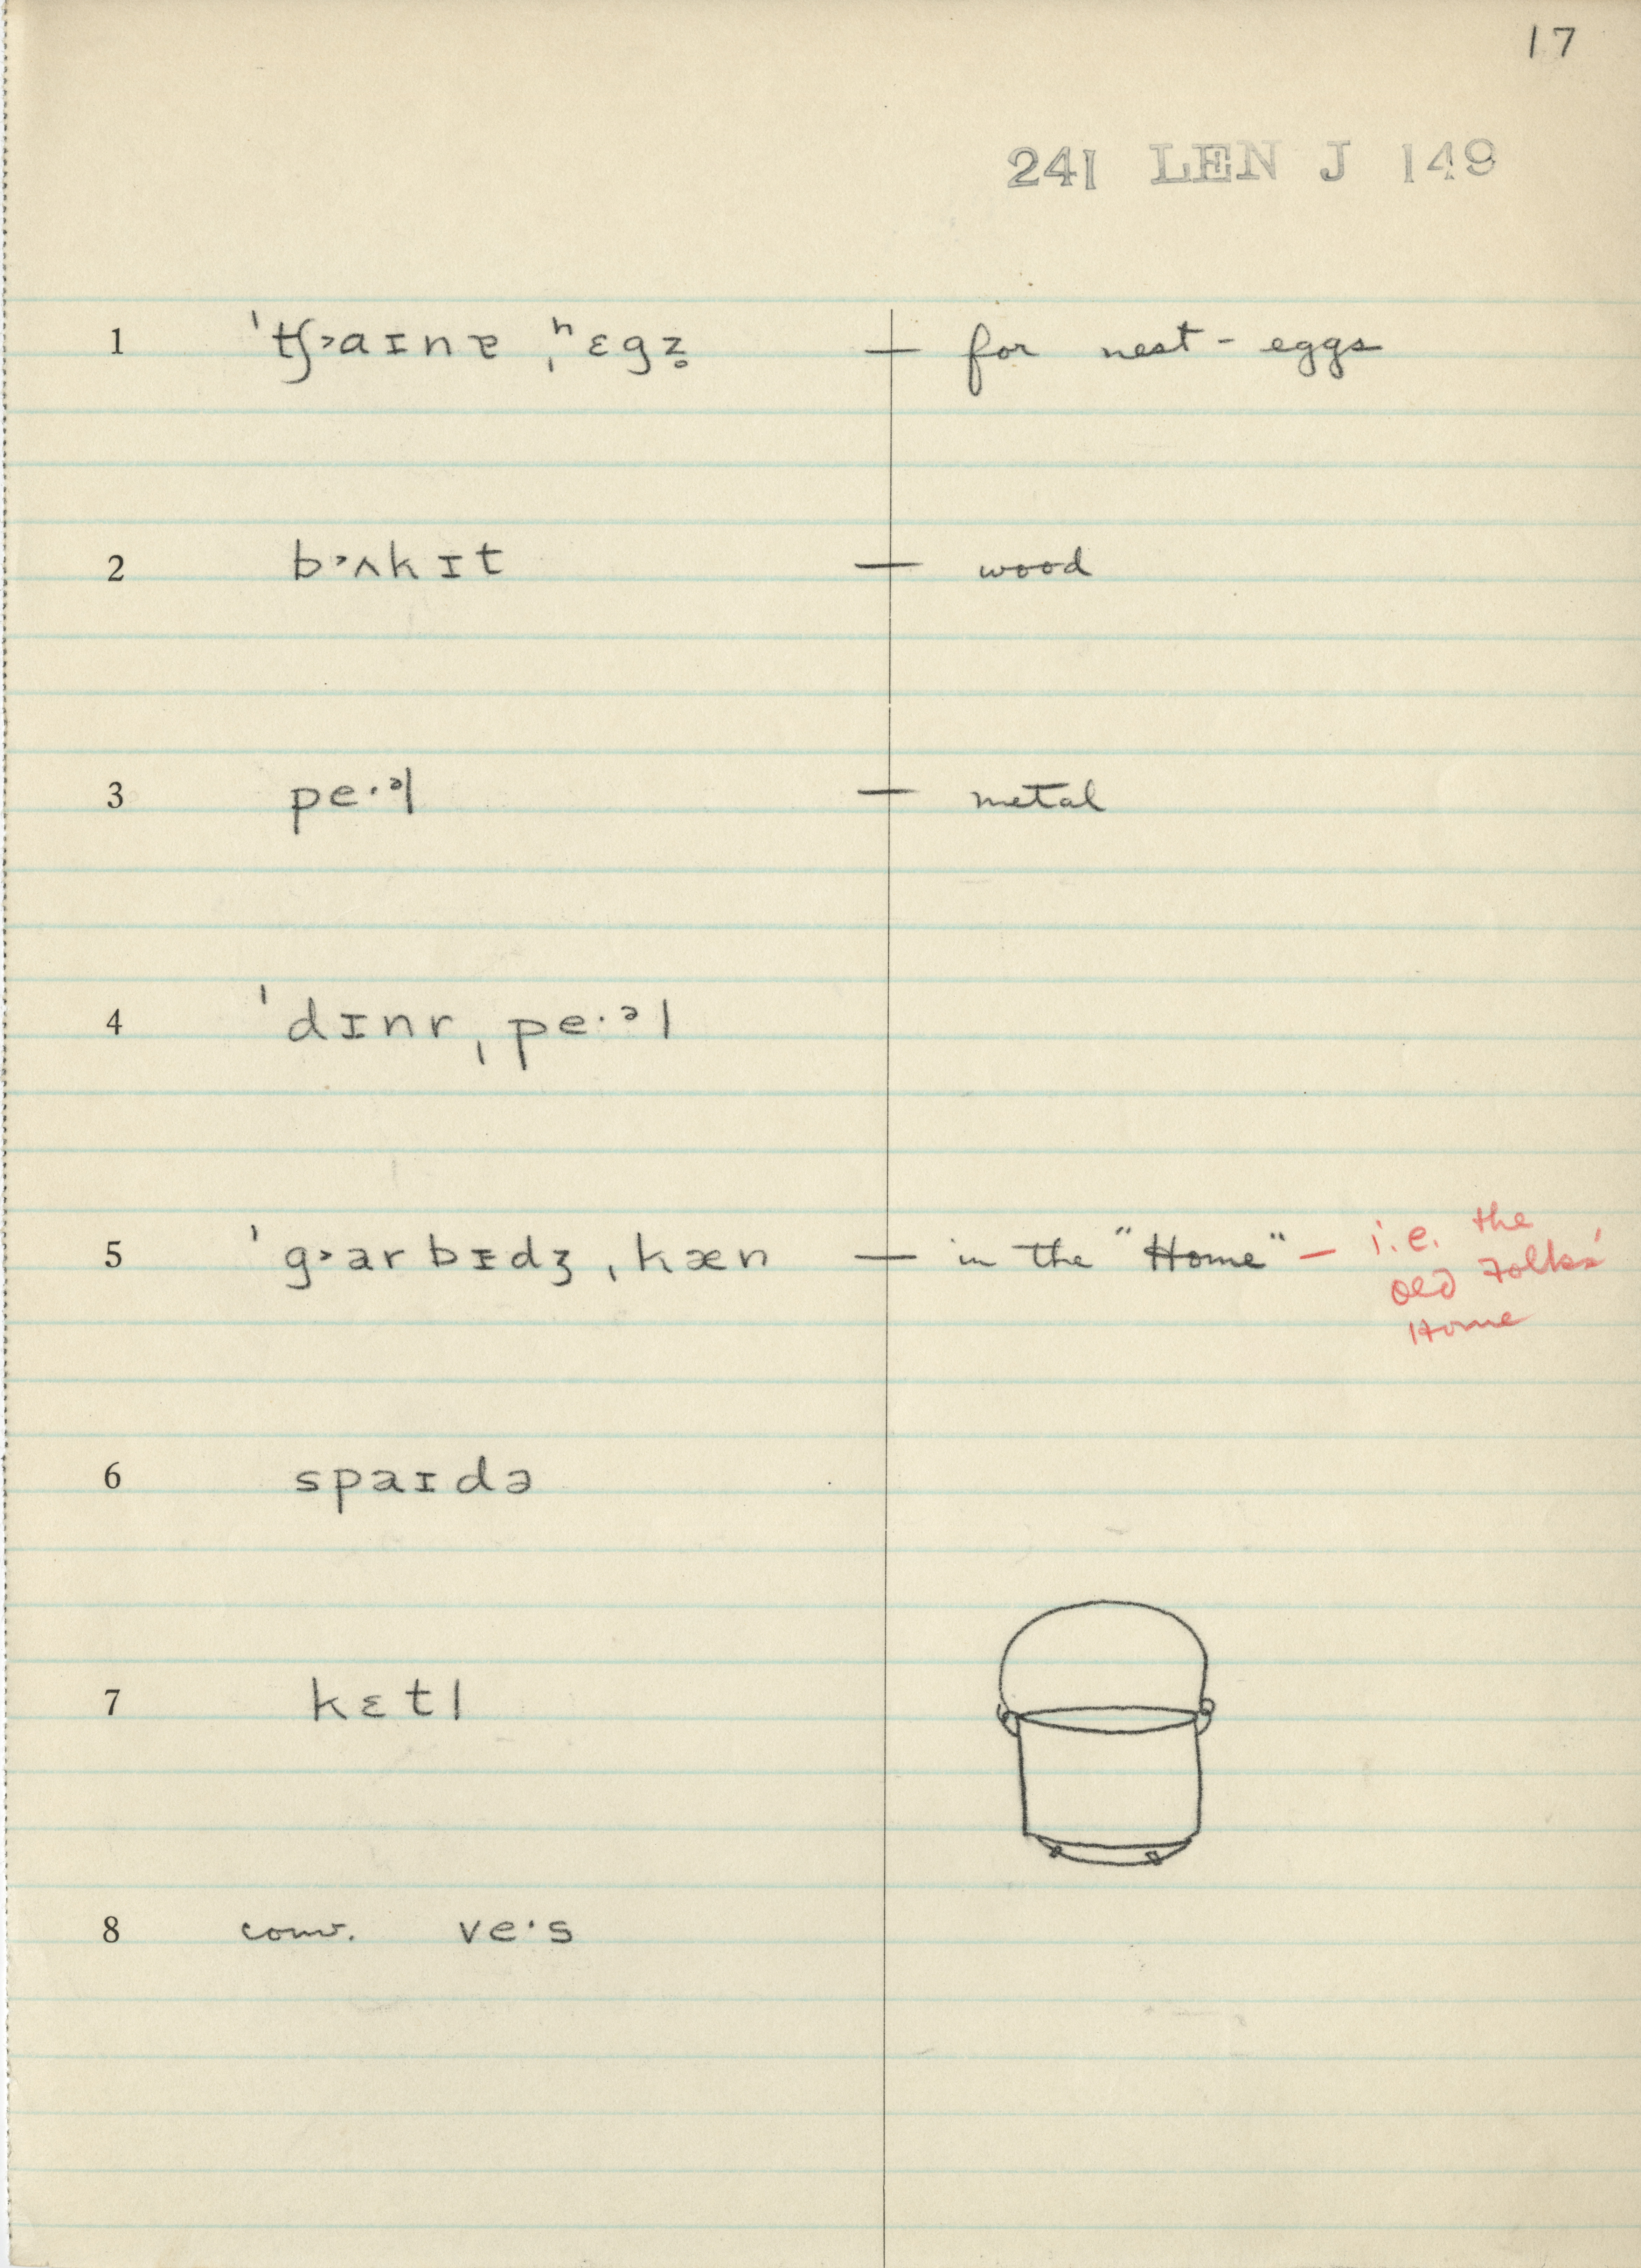 17
241 LEN J 149
1 ˈtʃ˃aɪnɐ ˌʰɛgz̥ — for nest-eggs
2 b˃ʌkɪt — wood
3 pe·ᵊl — metal
4 ˈdɪnr ˌpe·ᵊl
5 ˈg˃arbɪdʒ ˌkæn — in the "Home" — i.e. the
Old Folks'
Home
6 spaɪdə
7 kɛtl
8 conv. ve·s